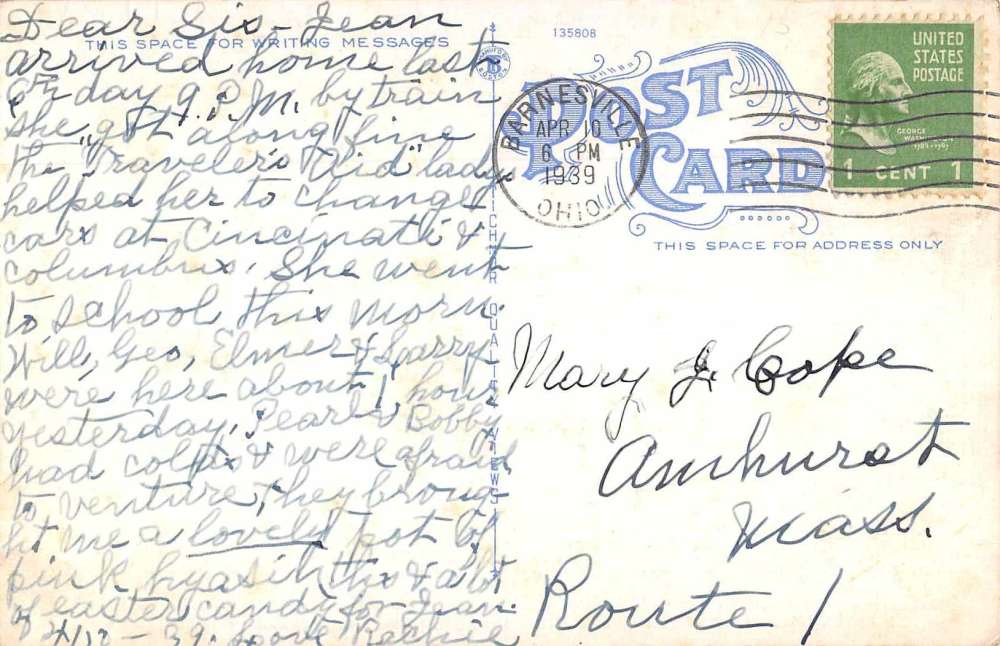 Dear Sis - Jean
THIS SPACE FOR WRITING MESSAGES
arrived home last
day 9 P.M. by train
she "got along fine"
the Travelers Aid lady
helped her to change
cars at Cincinati &
Columbus. She went
to school this morn.
Will, Geo, Elmer & Larry
were here about 1 hour
yesterday, Pearl & Bobby
had colds & were afraid
to venture, they broug-
ht me a lovely pot of
pink hyasinths & a lot
of easter candy for Jean.
4/10 - 39. Love Rechie
135808
POST CARD
BARNESVILLE
APR 10
6 PM
1939
OHIO
UNITED
STATES
POSTAGE
GEORGE
1 CENT 1
THIS SPACE FOR ADDRESS ONLY
Mary J. Cope
Amhurst
Mass.
Route 1